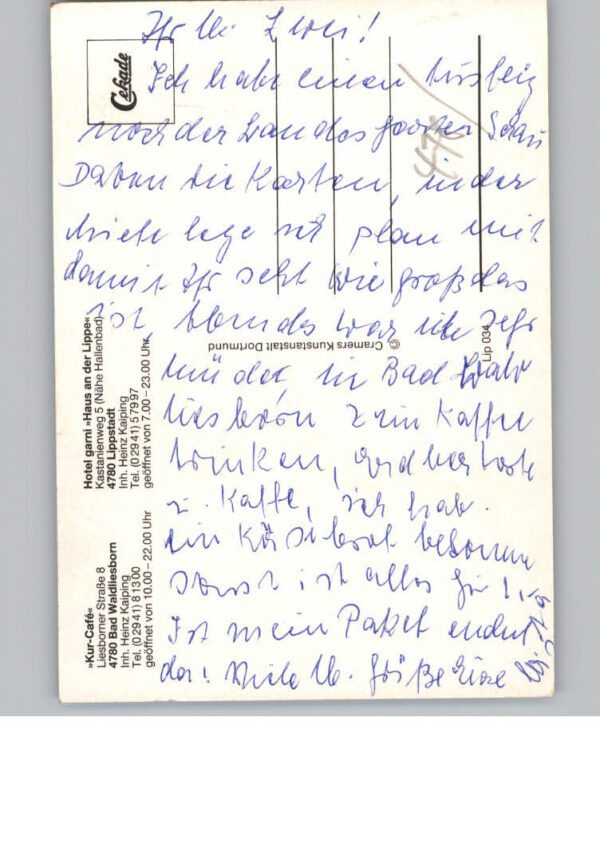 Ihr lb. Zwei!
Ich habe einen Ausflug
nach der Landesgarten Schau
Daben die Karten, in der
Miete lege ich plan mit
damit Ihr seht wie groß das
ist, abends war ich sehr
müde, in Bad Wald
liesborn zum Kaffee
trinken, Erdbeertorte
u. Kaffe, ich hab.
ein Käsebrot bekommen
sonst ist alles gut.
Ist mein Paket endlich
da! Viele lb. Grüße Eure
476
Cekade
Hotel garni »Haus an der Lippe«
Kastanienweg 5 (Nähe Hallenbad)
4780 Lippstadt
Inh. Heinz Kaiping
Tel. (02941) 57997
geöffnet von 7.00 – 23.00 Uhr
»Kur-Café«
Liesborner Straße 8
4780 Bad Waldliesborn
Inh. Heinz Kaiping
Tel. (02941) 81300
geöffnet von 10.00 – 22.00 Uhr
© Cramers Kunstanstalt Dortmund
Lip 034